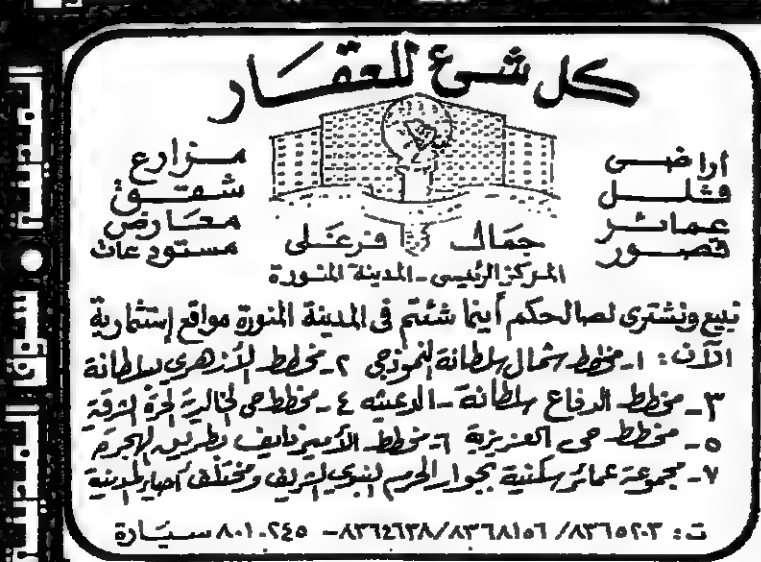 كل شئ للعقار
أراضى
فلل
عمائر
قصور
مزارع
شقق
معارض
مستودعات
جمال فرغلى
المركز الرئيسى - المدينة المنورة
نبيع ونشترى لصالحكم أينما شئتم فى المدينة المنورة مواقع إستثمارية
الآن: ١- مخطط شمال سلطانة النموذجى ٢- مخطط الأزهري بسلطانة
٣- مخطط الدفاع سلطانة - الدعيثه ٤- مخطط حى الخالدية الحرة الشرقية
٥- مخطط حى العزيزية ٦- مخطط الأمير نايف بطريق الهجرة
٧- مجموعة عمائر سكنية بجوار الحرم النبوي الشريف ومختلف أحياء المدينة
ت: ٨٣٦٥٢٠٣ / ٨٣٦٨١٥٦ / ٨٣٦٤٦٣٨ - ٨٠١٠٢٤٥ سيارة